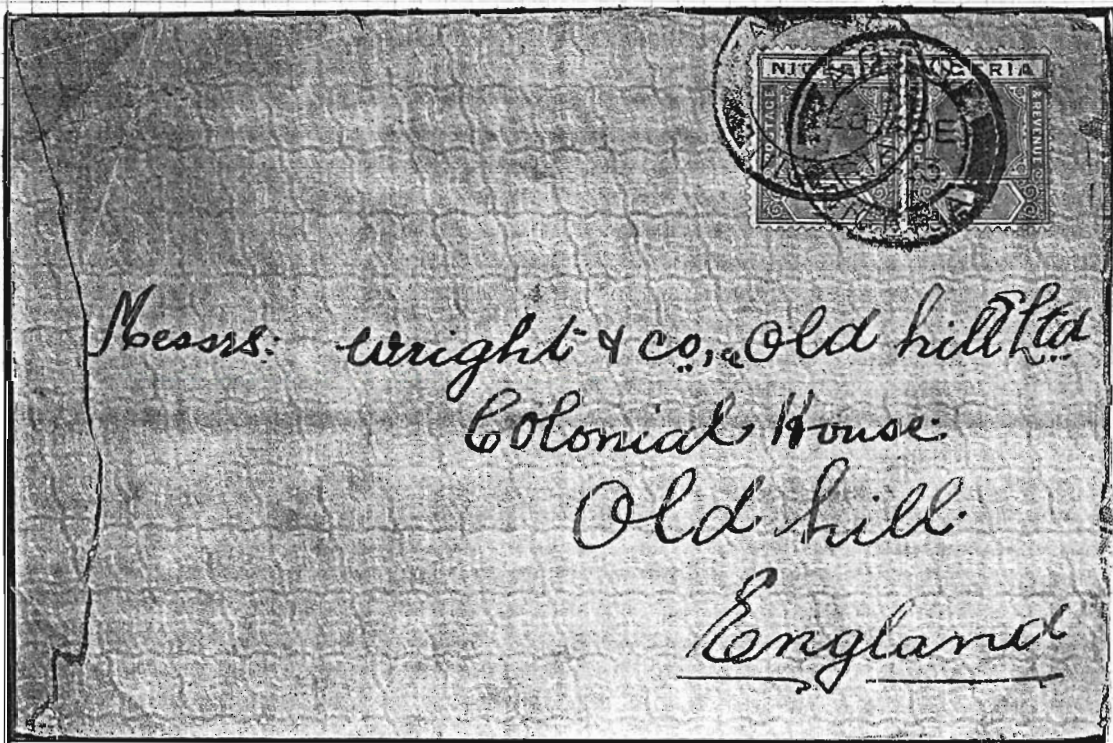 NIGERIA NIGERIA
POSTAGE REVENUE
DE
Messrs: Wright & Co, Old hill Ltd
Colonial House
Old hill
England